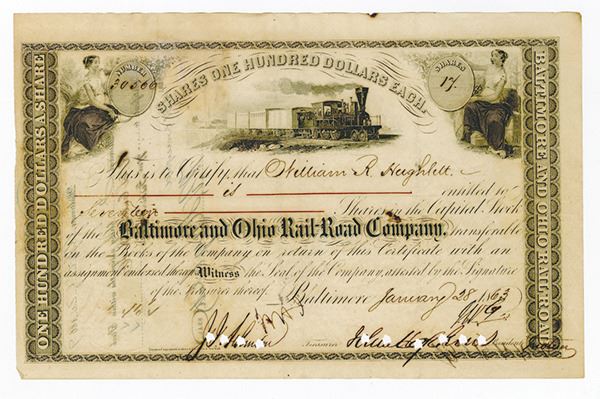 NUMBER
50500
SHARES ONE HUNDRED DOLLARS EACH.
SHARES
17
ONE HUNDRED DOLLARS A SHARE
BALTIMORE AND OHIO RAILROAD
This is to Certify, that William R. Hughlett
is entitled to
Seventeen Shares in the Capital Stock
of the Baltimore and Ohio Rail-Road Company, transferable
on the Books of the Company on return of this Certificate with an
assignment endorsed thereon Witness the Seal of the Company, attested by the Signature
of the Treasurer thereof.
Baltimore January 28 1863
Treasurer President